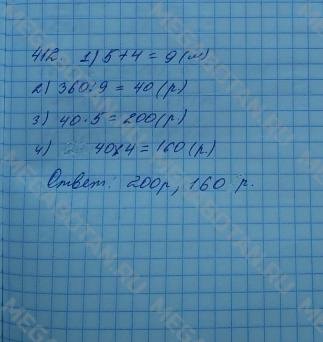 412. 1) 5+4 = 9 (м)
2) 360:9 = 40 (р.)
3) 40·5 = 200 (р)
4) 40·4 = 160 (р.)
Ответ: 200р, 160 р.
MEGABOTAN.RU